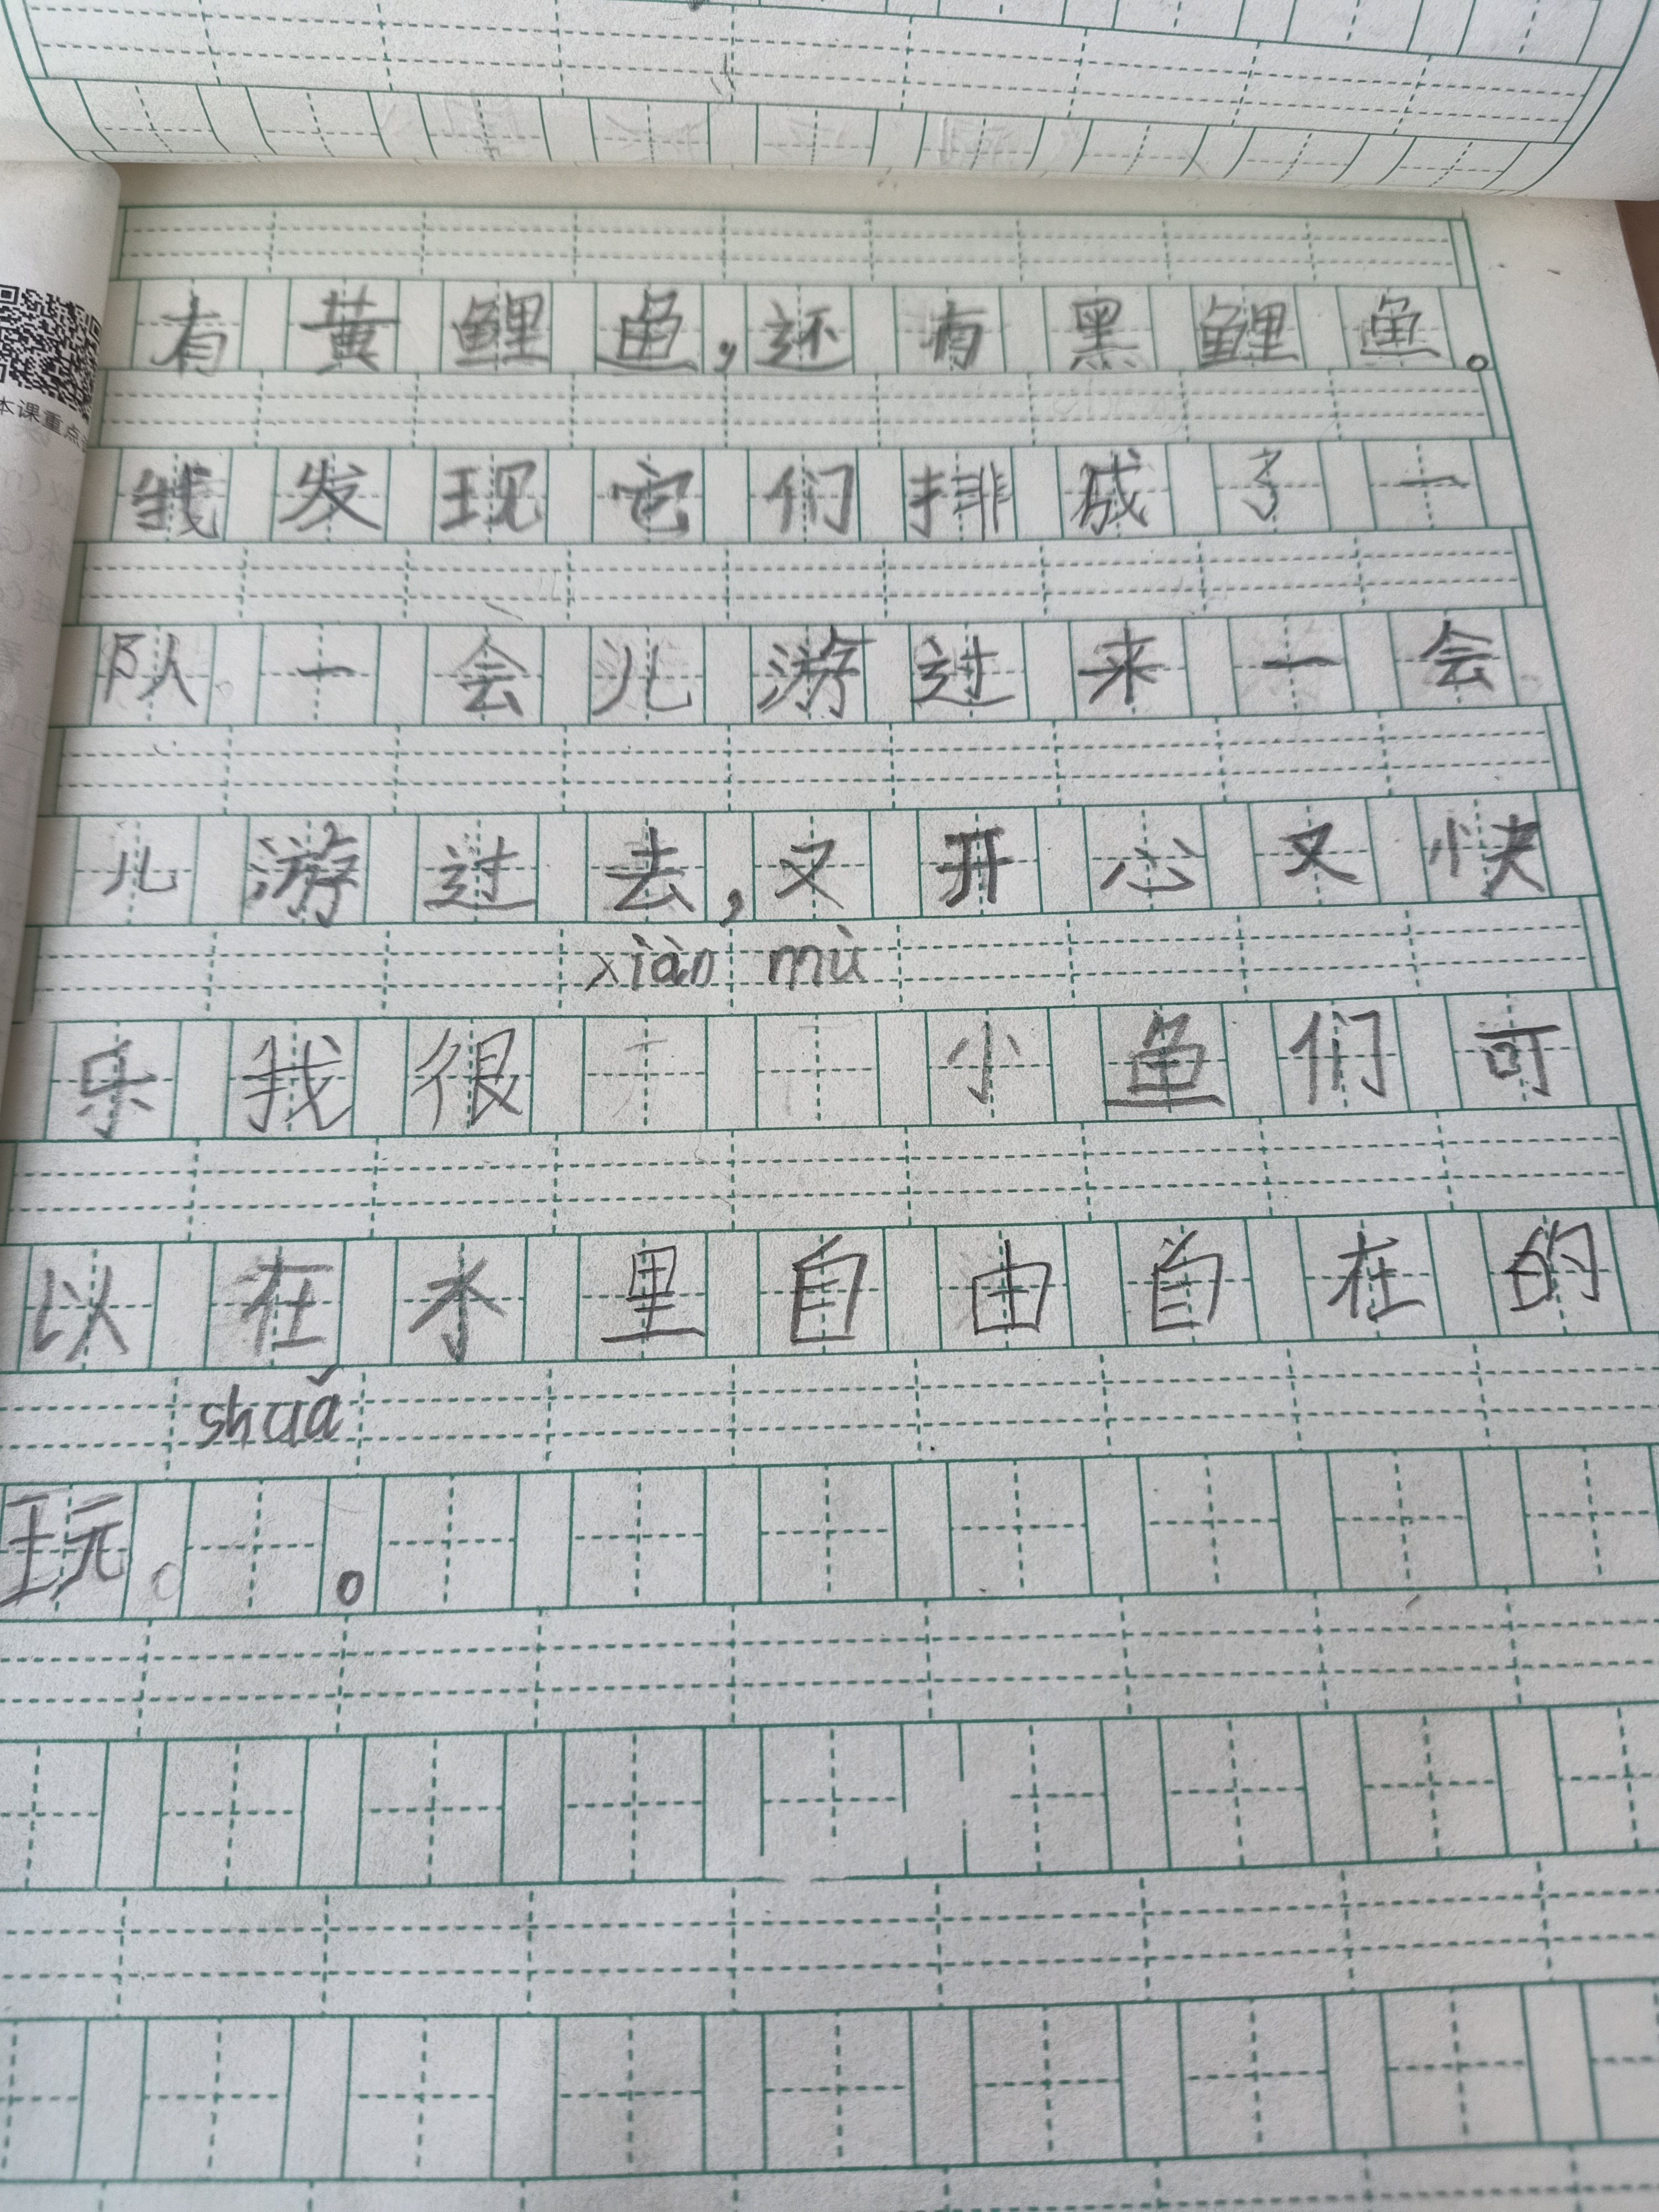 本课重点
有黄鲤鱼,还有黑鲤鱼。
我发现它们排成了一
队一会儿游过来一会
儿游过去,又开心又快
xiàn mù
乐我很 小鱼们可
以在水里自由自在的
shuǎ
玩 。